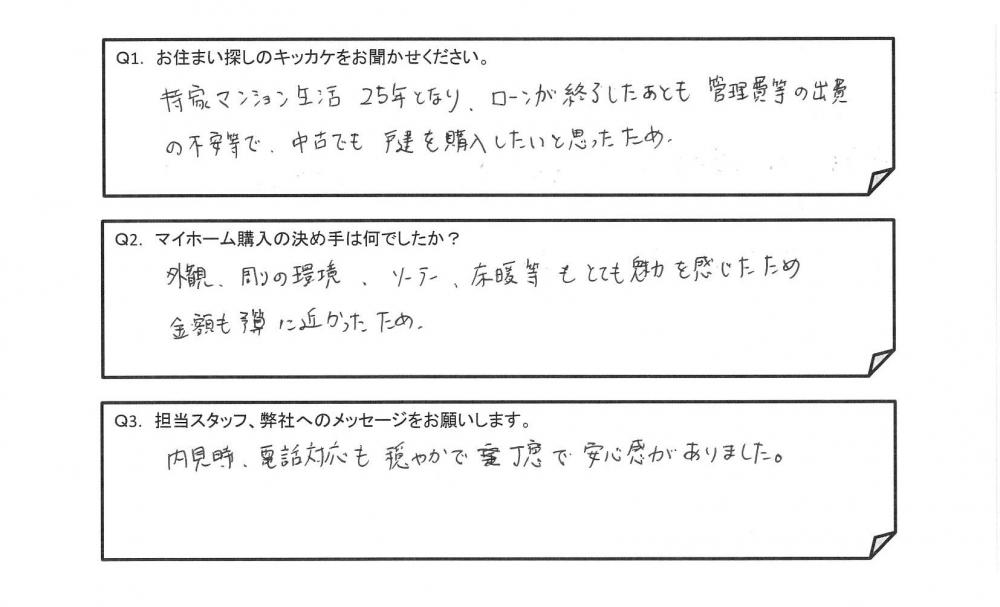 Q1. お住まい探しのキッカケをお聞かせください。
持家マンション生活 25年となり、ローンが終了したあとも 管理費等の出費
の不安等で、中古でも 戸建を購入したいと思ったため.
Q2. マイホーム購入の決め手は何でしたか？
外観、周りの環境、ソーラー、床暖等 もとても魅力を感じたため
金額も予算に近かったため.
Q3. 担当スタッフ、弊社へのメッセージをお願いします。
内見時、電話対応も 穏やかで 丁寧で 安心感がありました。